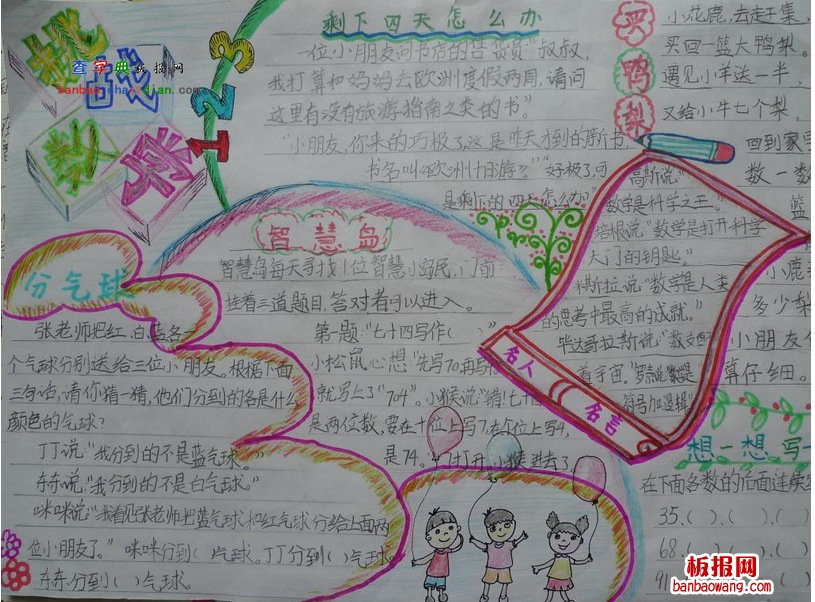 挑战
数学
123
查字典板报网
banbao.chazidian.com
剩下四天怎么办
一位小朋友问书店的售货员:“叔叔,
我打算和妈妈去欧洲度假两周,请问
这里有没有旅游指南之类的书。”
“小朋友,你来的巧极了,这是昨天才到的新书,
书名叫《欧洲十日游》。”“好极了,可
是剩下的四天怎么办。”
买鸭梨
小花鹿,去走集,
买回一篮大鸭梨。
遇见小羊送一半,
又给小牛七个梨,
回到家
数一数
篮
小鹿
多少梨
小朋友
算仔细。
高斯说:“
数学是科学之王。”
培根说:“数学是打开科学
大门的钥匙。”
米斯拉说:“数学是人类
的思考中最高的成就。”
毕达哥拉斯说:“数支配
着宇宙。”罗素说:“数学是
符号加逻辑”
名人
名言
智慧岛
智慧岛每天寻找1位智慧小岛民,小门前
挂着三道题目,答对者可以进入。
第一题:“七十四写作( )”
小松鼠心想:“先写70再写
就写上了“704”。小猴说:“错!七十
是两位数,要在十位上写7,在个位上写4,
是74。”门打开,小猴进去了。
分气球
张老师把红、白、蓝各一
个气球分别送给三位小朋友。根据下面
三句话,请你猜一猜,他们分到的各是什么
颜色的气球?
丁丁说:“我分到的不是蓝气球。”
东东说:“我分到的不是白气球。”
咪咪说:“我看见张老师把蓝气球和红气球分给上面两
位小朋友了。”咪咪分到( )气球。丁丁分到( )气球。
东东分到( )气球。
想一想 写一
在下面各数的后面连续写
35.( ).( ).( )
68.( ).( ).( )
91
板报网
banbaowang.com